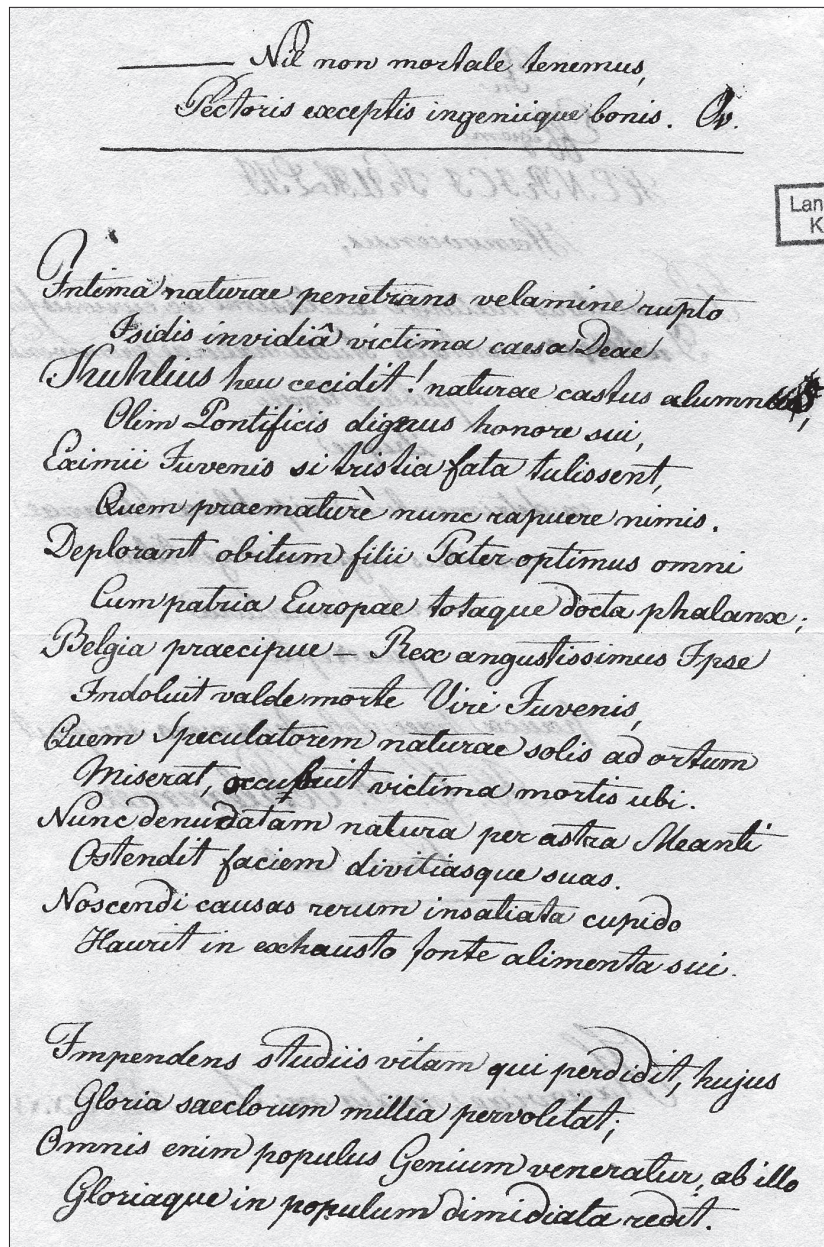 Nil non mortale tenemus,
Pectoris exceptis ingeniique bonis. Ov.
Lan
K
Intima naturae penetrans velamine rupto
Isidis invidiâ victima caesa Deae
Kuhlius heu cecidit! naturae castus alumnus,
Olim Pontificis dignus honore sui,
Eximii Juvenis si tristia fata tulissent,
Quem praematurè nunc rapuere nimis.
Deplorant obitum filii Pater optimus omni
Cum patria Europae totaque docta phalanx;
Belgia praecipue – Rex angustissimus Ipse
Indoluit valde morte Viri Juvenis,
Quem Speculatorem naturae solis ad ortum
Miserat, occubuit victima mortis ubi.
Nunc denudatam natura per astra Meanti
Ostendit faciem divitiasque suas.
Noscendi causas rerum insatiata cupido
Haurit in exhausto fonte alimenta sui.
Impendens studiis vitam qui perdidit, hujus
Gloria saeclorum millia pervolitat;
Omnis enim populus Genium veneratur, ab illo
Gloriaque in populum dimidiata redit.